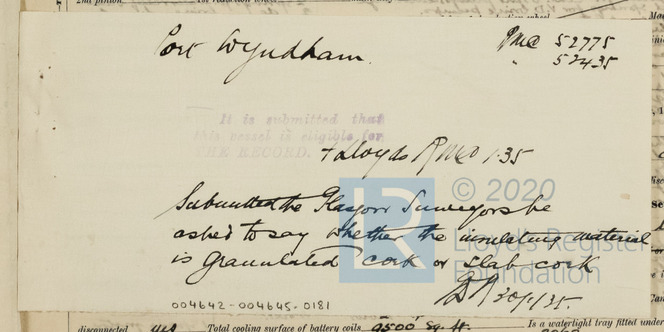 Port Wyndham.
RMC 52775
" 52435
It is submitted that
this vessel is eligible for
THE RECORD. + Lloyds RMC 1.35
© 2020
LR
Lloyd's Register
Foundation
Submitted the Glasgow Surveyors be
asked to say whether the insulating material
is granulated cork or slab cork
20/1/35
004642-004645-0181
disconnected yes Total cooling surface of battery coils 9500 sq. ft. Is a watertight tray fitted under